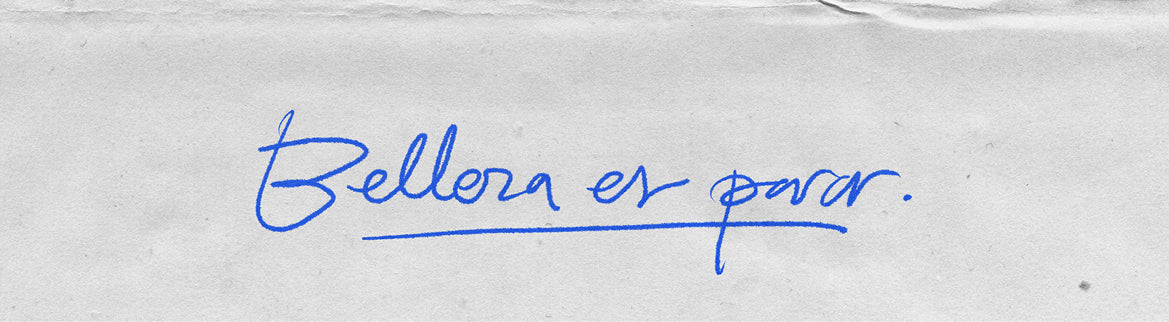 Belleza es parar.